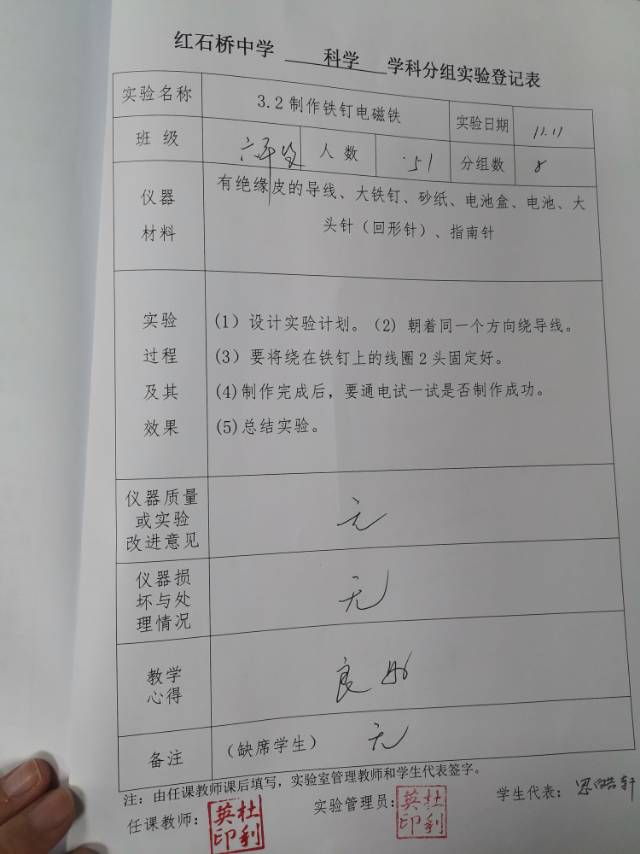 红石桥中学 科学 学科分组实验登记表
实验名称 3.2制作铁钉电磁铁 实验日期 11.11
班 级 六年级 人 数 51 分组数 8
仪器
材料
有绝缘皮的导线、大铁钉、砂纸、电池盒、电池、大
头针（回形针）、指南针
实验
过程
及其
效果
(1) 设计实验计划。（2) 朝着同一个方向绕导线。
(3) 要将绕在铁钉上的线圈2头固定好。
(4)制作完成后，要通电试一试是否制作成功。
(5)总结实验。
仪器质量
或实验
改进意见
无
仪器损
坏与处
理情况
无
教学
心得
良好
备注 （缺席学生） 无
注：由任课教师课后填写，实验室管理教师和学生代表签字。
任课教师： 杜利英印 实验管理员： 杜利英印 学生代表：